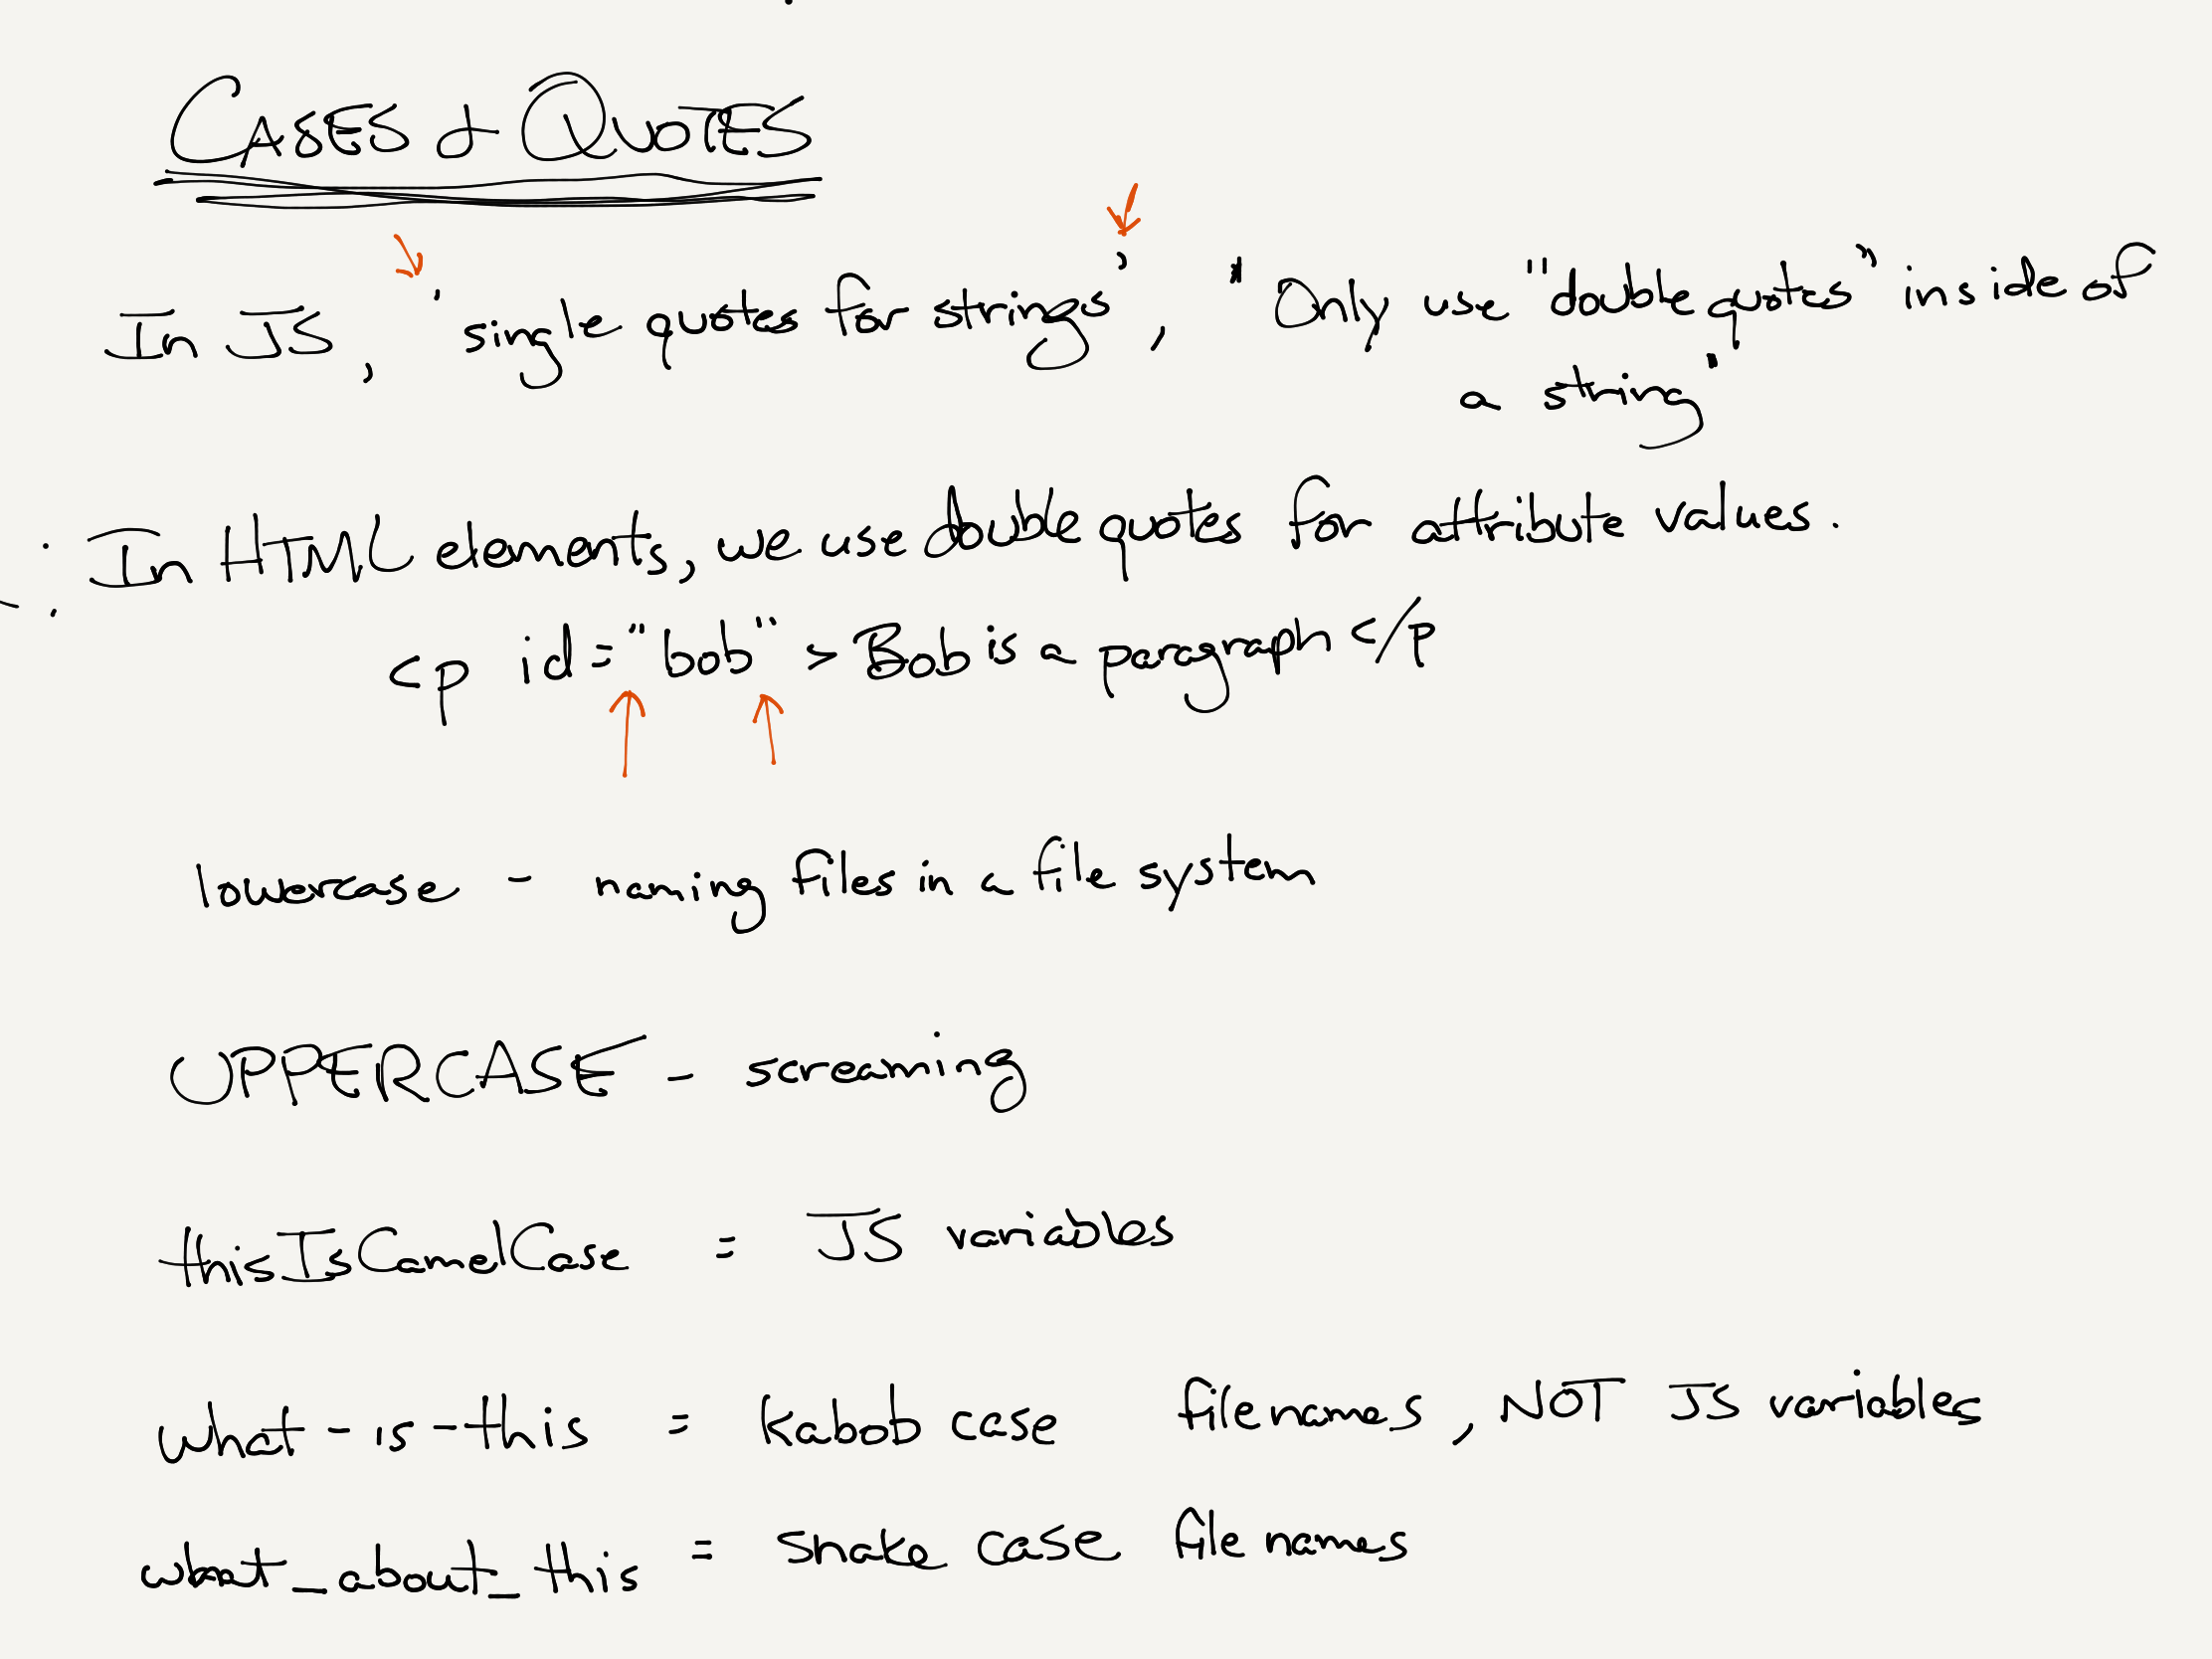 CASES & QUOTES
In JS, 'single quotes for strings', 'Only use "double quotes" inside of
a string'
In HTML elements, we use double quotes for attribute values.
<p id="bob" > Bob is a paragraph </p
lowercase - naming files in a file system
UPPERCASE - screaming
thisIsCamelCase = JS variables
what-is-this = kabob case filenames, NOT JS variables
what_about_this = snake case file names